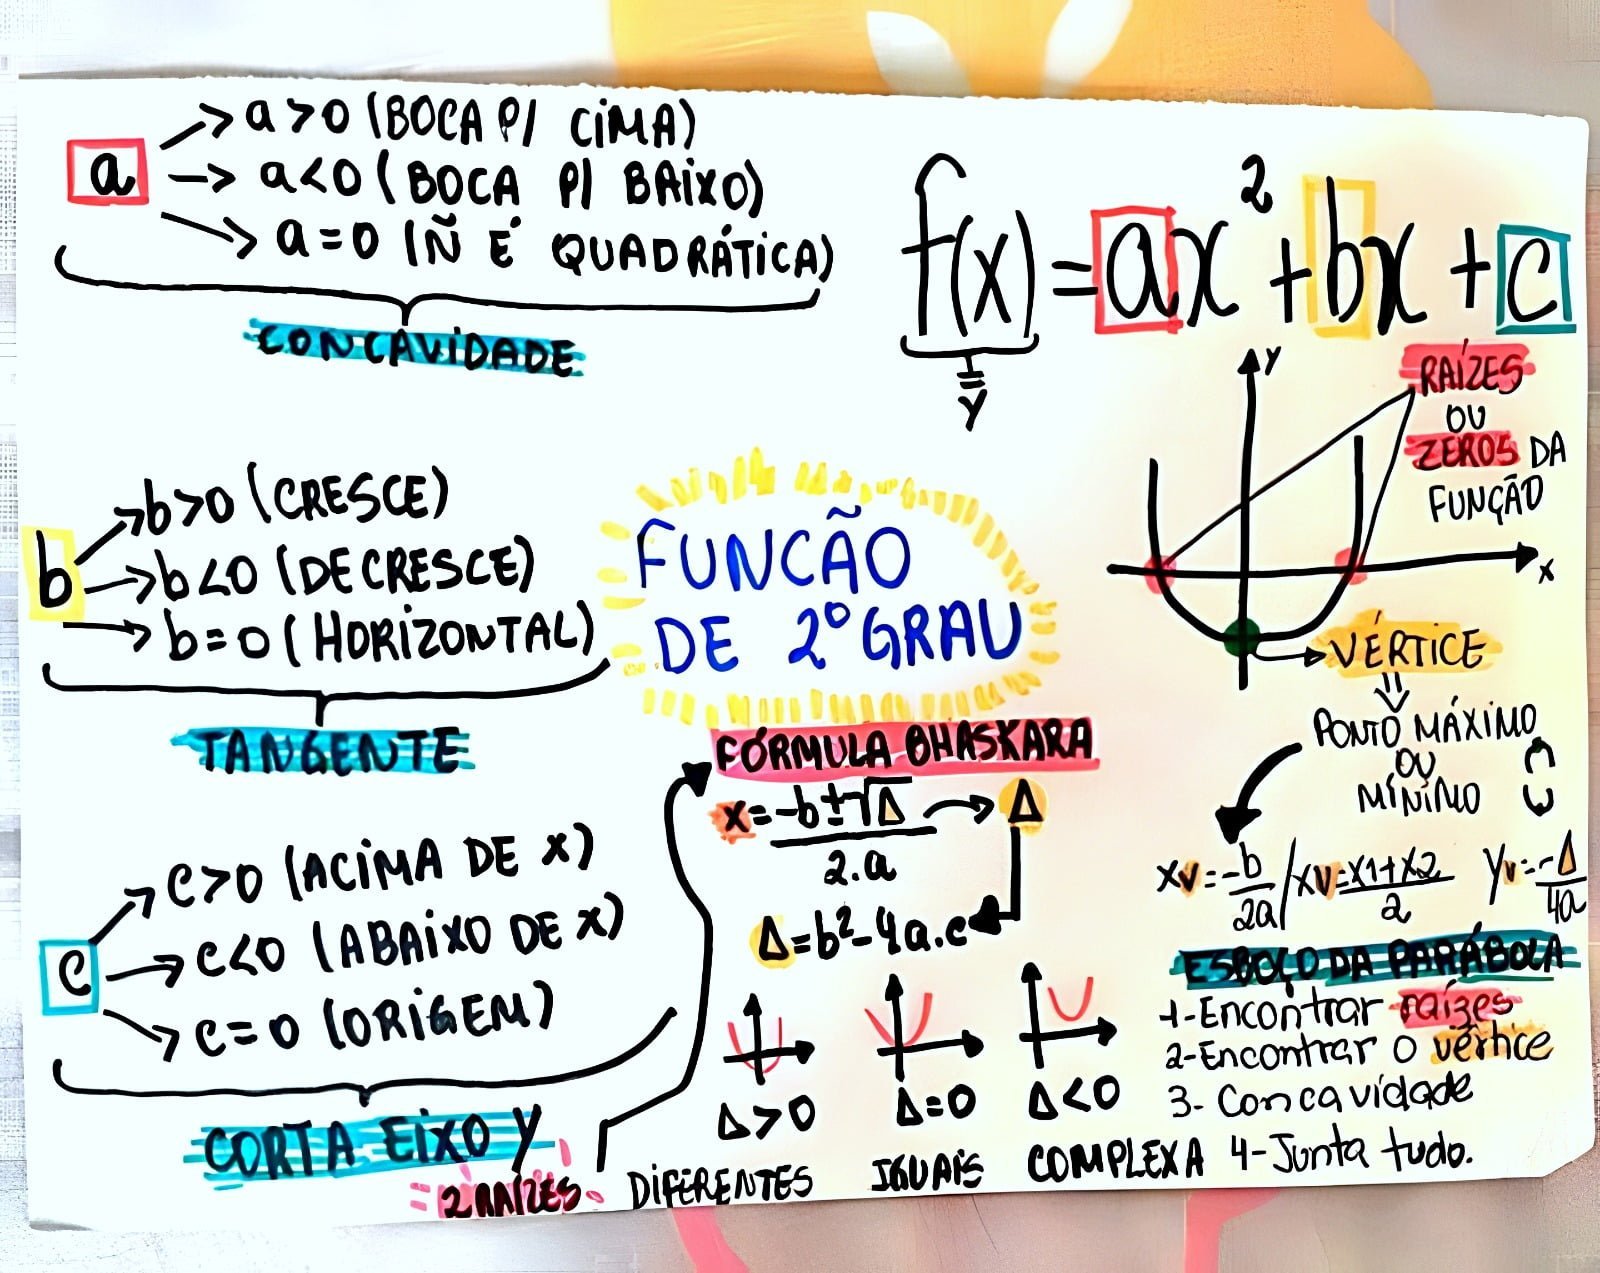 a
→ a>0 (BOCA P/ CIMA)
→ a<0 (BOCA P/ BAIXO)
→ a=0 (Ñ É QUADRÁTICA)
CONCAVIDADE
f(x)=ax²+bx+c
=
y
b
→b>0 (CRESCE)
→b<0 (DECRESCE)
→b=0 (HORIZONTAL)
TANGENTE
FUNCÃO
DE 2º GRAU
y
x
RAÍZES
OU
ZEROS DA
FUNÇÃO
→VÉRTICE
⇓
PONTO MÁXIMO
OU
MÍNIMO
xv=-b/2a / xv=x1+x2/2 yv=-Δ/4a
c
→ c>0 (ACIMA DE x)
→ c<0 (ABAIXO DE x)
→ c=0 (ORIGEM)
CORTA EIXO Y
FÓRMULA BHASKARA
x=-b±√Δ/2.a → Δ
Δ=b²-4a.c
Δ>0 Δ=0 Δ<0
2 RAÍZES DIFERENTES IGUAIS COMPLEXA
ESBOÇO DA PARÁBOLA
1-Encontrar raízes
2-Encontrar o vértice
3- Concavidade
4-Junta tudo.